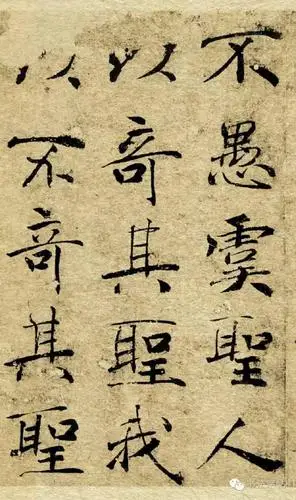 不愚虞聖人
以竒其聖我
以不竒其聖